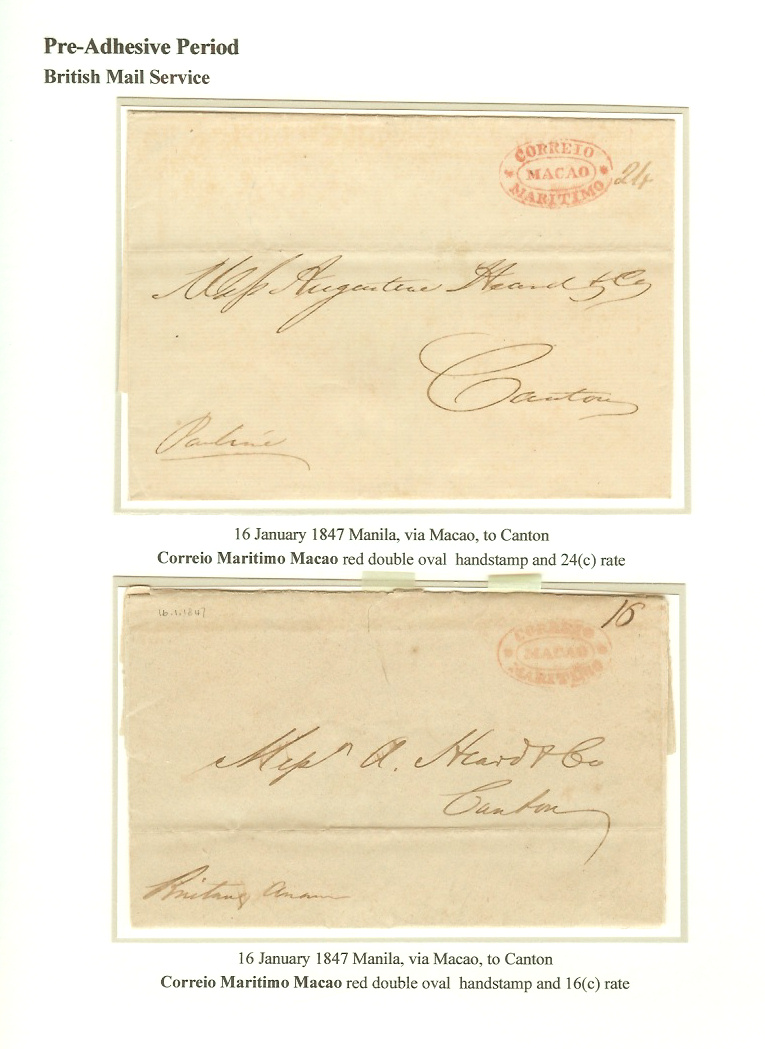 Pre-Adhesive Period
British Mail Service
CORREIO
MACAO
MARITIMO
24
Mess Augustine Heard & Co
Canton
Pauline
16 January 1847 Manila, via Macao, to Canton
Correio Maritimo Macao red double oval handstamp and 24(c) rate
16.1.1847
16
CORREIO
MACAO
MARITIMO
Messrs A. Heard & Co
Canton
16 January 1847 Manila, via Macao, to Canton
Correio Maritimo Macao red double oval handstamp and 16(c) rate